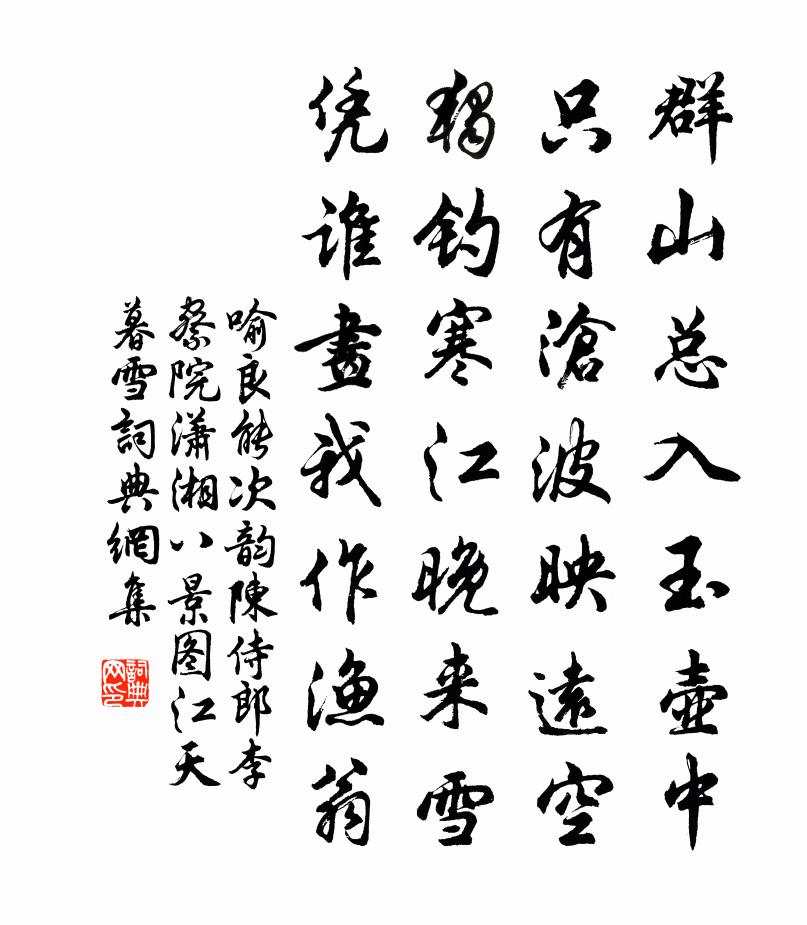 群山总入玉壶中
只有滄波映遠空
独钓寒江晚来雪
凭谁畫我作漁翁
喻良能次韵陳侍郎李
察院潇湘八景图江天
暮雪詞典網集
詞典网印